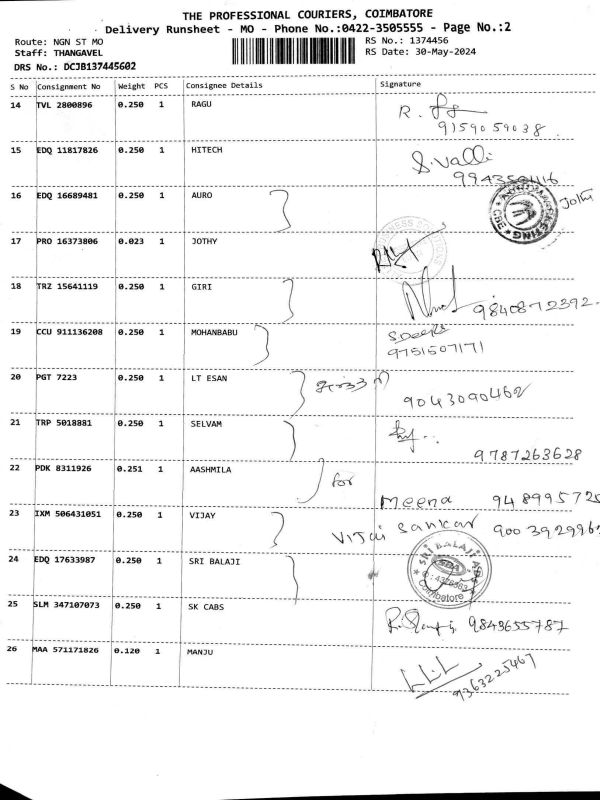 THE PROFESSIONAL COURIERS, COIMBATORE
Delivery Runsheet - MO - Phone No.:0422-3505555 - Page No.:2
Route: NGN ST MO RS No.: 1374456
Staff: THANGAVEL RS Date: 30-May-2024
DRS No.: DCJB137445602
S No Consignment No Weight PCS Consignee Details Signature
14 TVL 2800896 0.250 1 RAGU
9159059038
15 EDQ 11817826 0.250 1 HITECH S.Valli
16 EDQ 16689481 0.250 1 AURO Jothi
17 PRO 16373806 0.023 1 JOTHY
18 TRZ 15641119 0.250 1 GIRI 9840872392
19 CCU 911136208 0.250 1 MOHANBABU
9751507171
20 PGT 7223 0.250 1 LT ESAN
9043090462
21 TRP 5018881 0.250 1 SELVAM
9787263628
22 PDK 8311926 0.251 1 AASHMILA for
Meena 948995725
23 IXM 506431051 0.250 1 VIJAY
Vijai Sankar
24 EDQ 17633987 0.250 1 SRI BALAJI
SRI BALAJI
Coimbatore
25 SLM 347107073 0.250 1 SK CABS 9843655787
26 MAA 571171826 0.120 1 MANJU
9363225467